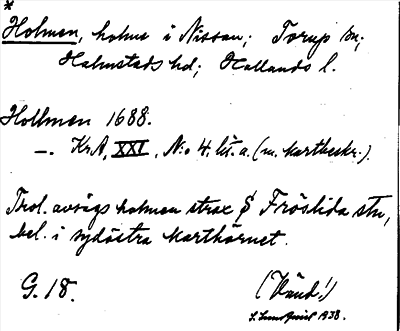 *
Holmen, holme i Nissan; Torup sn;
Halmstads hd; Hallands l.
Hollmen 1688.
—. KrA, XXI, N:o 4. lit. a. (m. kartbeskr.).
Trol. avsägs holmen strax § Fröslida stn,
bel. i sydöstra karthörnet.
G. 18. (Vänd!)
1938.